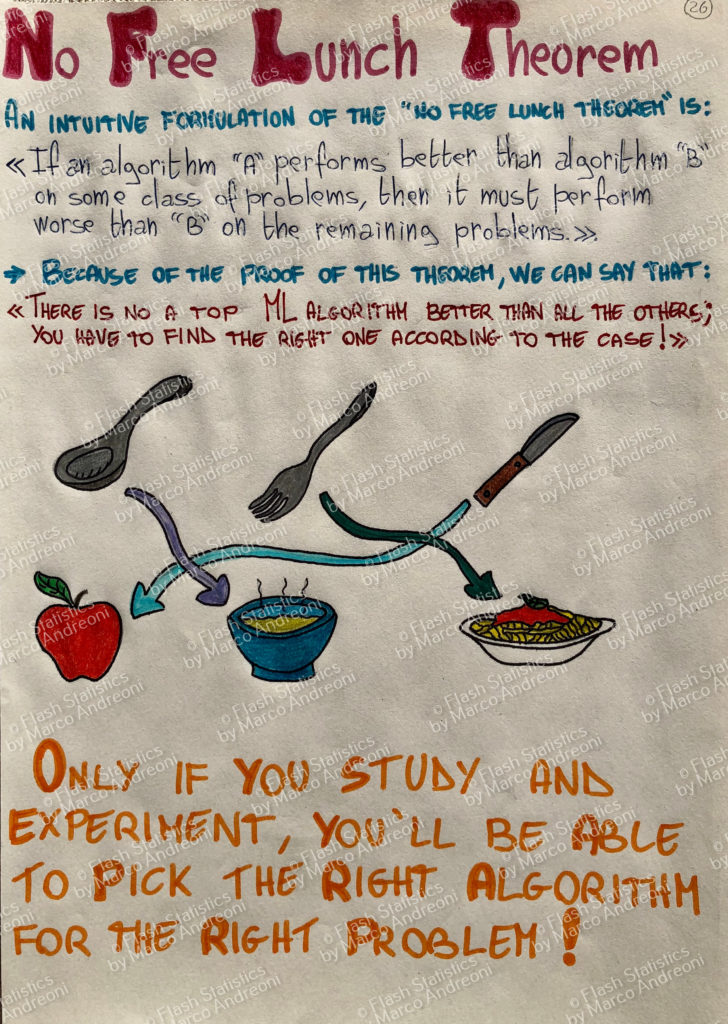 26
No Free Lunch Theorem
AN INTUITIVE FORMULATION OF THE "NO FREE LUNCH THEOREM" IS:
«If an algorithm "A" performs better than algorithm "B"
on some class of problems, then it must perform
worse than "B" on the remaining problems.».
→ BECAUSE OF THE PROOF OF THIS THEOREM, WE CAN SAY THAT:
«THERE IS NO A TOP ML ALGORITHM BETTER THAN ALL THE OTHERS;
YOU HAVE TO FIND THE RIGHT ONE ACCORDING TO THE CASE!»
ONLY IF YOU STUDY AND
EXPERIMENT, YOU'LL BE ABLE
TO PICK THE RIGHT ALGORITHM
FOR THE RIGHT PROBLEM!
© Flash Statistics
by Marco Andreoni